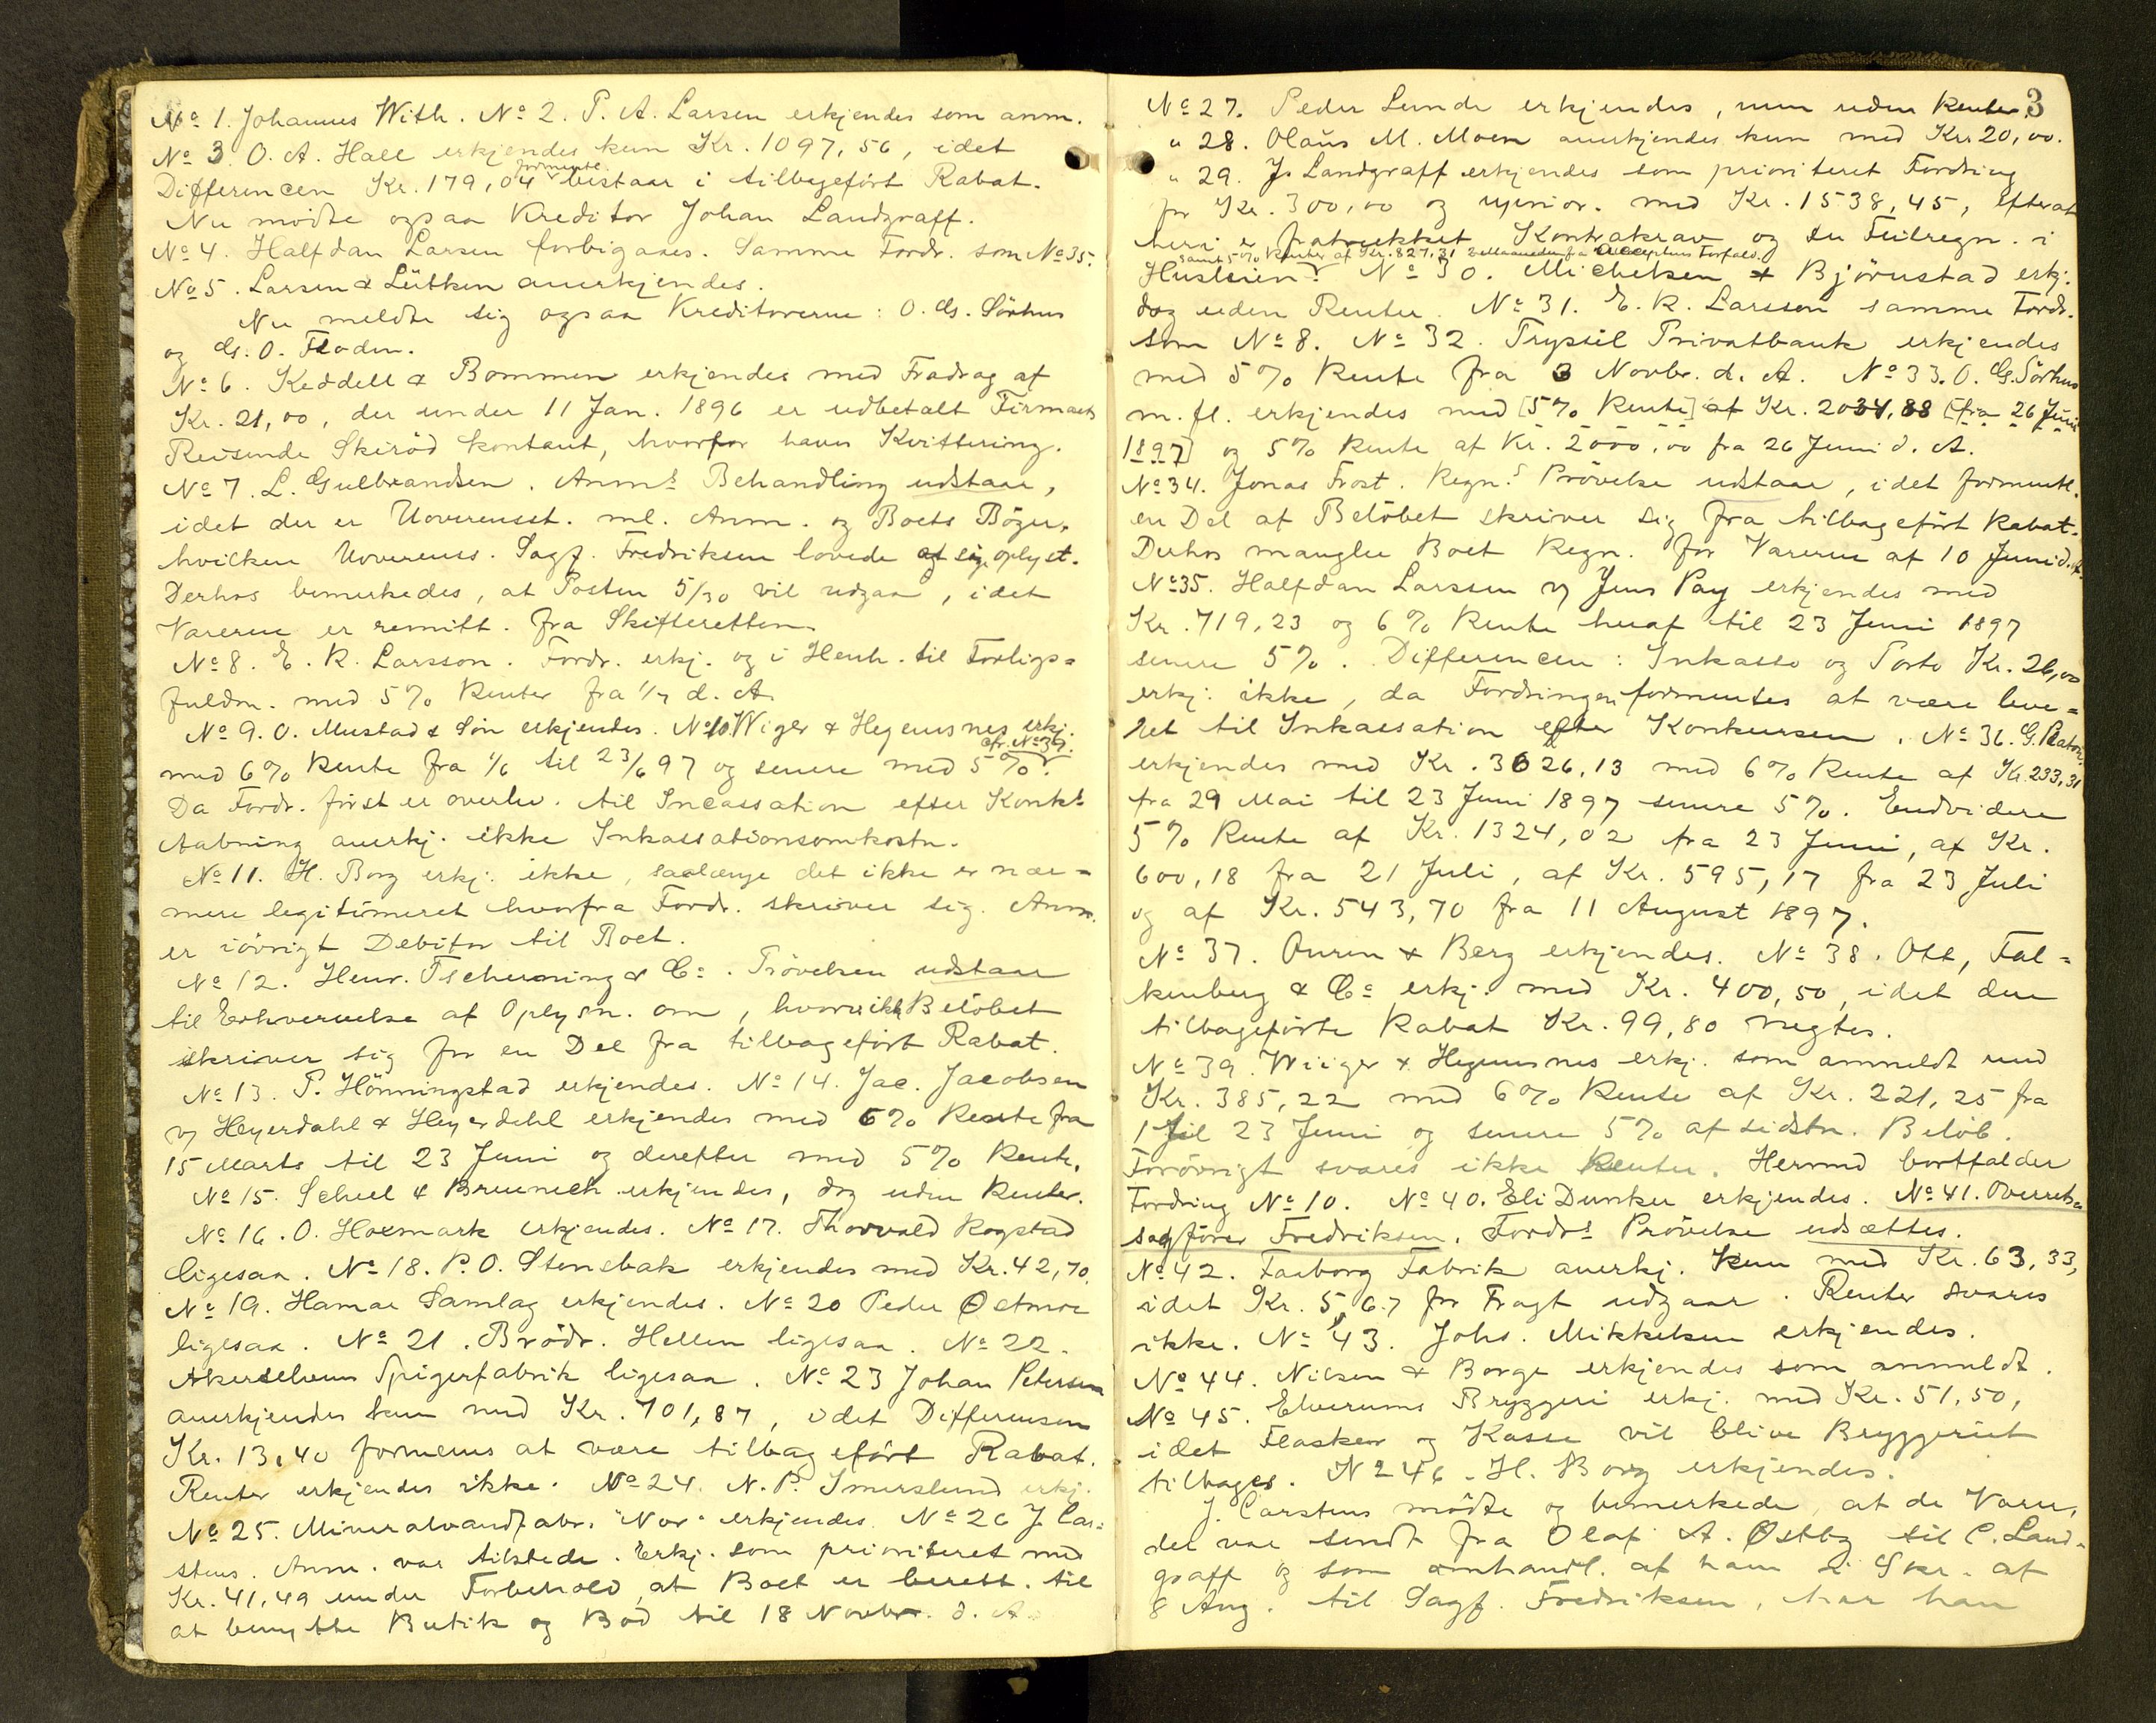 No 1. Johannes With. No 2. P. A. Larsen erkjendes som anm.
No 3. O. A. Hall erkjendes kun Kr. 1097,56, idet
formentl.
Differencen Kr. 179,04 bestaar i tilbageført Rabat.
Nu mødte ogsaa Kreditor Johan Landgraff.
No 4. Halfdan Larsen forbigaaes. Samme Fordr. som No 35.
No 5. Larsen & Lütken anerkjendes.
Nu meldte sig ogsaa Kreditorerne: O. G. Sörhus
og G. O. Floden.
No 6. Keddell & Bommen erkjendes med Fradrag af
Kr. 21,00, der under 11 Jan. 1896 er udbetalt Firmaets
Reisende Skiröd kontant, hvorfor haves Kvittering.
No 7. L. Gulbrandsen. Anms Behandling udstaar,
idet der er Uoverensst. ml. Anm. og Boets Böger,
hvilken Uoverenss. Sagf. Fredriksen lovede at oplyst.
Derhos bemerkedes, at Posten 5/30 vil udgaa, idet
Varerne er remitt. fra Skifteretten.
No 8. E. R. Larsson. Fordr. erkj. og i Henh. til Forligs=
fuldm. med 5% Renter fra 1/7 d. A.
No 9. O. Mustad & Sön erkjendes. No 10. Wiger & Hegemsnes erkj.
cfr. No 39.
med 6% Rente fra 1/6 til 23/6 97 og senere med 5%.
Da Fordr. först er overlev. til Incassation efter Konk.s
Aabning anerkj. ikke Inkassationsomkostn.
No 11. H. Borg erkj. ikke, saalænge det ikke er nær=
mere legitimeret hvorfra Fordr. skriver sig. Anm.
er iövrigt Debitor til Boet.
No 12. Henr. Tscherning & Co. Prövelsen udstaar
til Erhvervelse af Oplysn. om, hvorvidt Belöbet
skriver sig for en Del fra tilbageført Rabat.
No 13. P. Hönningstad erkjendes. No 14. Jac. Jacobsen
v/ Heyerdahl & Heyerdahl erkjendes med 6% Rente fra
15 Marts til 23 Juni og derefter med 5% Rente.
No 15. Scheel & Bruenech erkjendes, dog uden Renter.
No 16. O. Hoemark erkjendes. No 17. Thorvald Rogstad
ligesaa. No 18. P. O. Stensbak erkjendes med Kr. 42,70.
No 19. Hamar Samlag erkjendes. No 20 Peder Østmoe
ligesaa. No 21. Brödr. Hellen ligesaa. No 22.
Akerselvens Spigerfabrik ligesaa. No 23 Johan Petersen
anerkjendes kun med Kr. 701,87, idet Differensen
Kr. 13,40 formenes at være tilbageført Rabat.
Renter erkjendes ikke. No 24. N. P. Imerslund erkj.
No 25. Mineralvandfabr. "Nor" erkjendes. No 26 J. Car=
stens. Anm. var tilstede. Erkj. som prioriteret med
Kr. 41,49 under Forbehold, at Boet er berett. til
at benytte Butik og Bod til 18 Novbr. d. A.
3
No 27. Peder Lunde erkjendes, men uden Renter.
" 28. Olaus M. Moen anerkjendes kun med Kr. 20,00.
" 29. J. Landgraff erkjendes som prioriteret Fordring
for Kr. 300,00 og uprior. med Kr. 1538,45, efterat
heri er fratrukket Kontrakrav og en Feilregn. i
samt 5% Renter af Kr. 827,31 3 Maaneder fra Accepternes Forfald.
Husleien. No 30. Michelsen & Björnstad erkj.
dog uden Renter. No 31. E. R. Larsson samme Fordr.
som No 8. No 32. Trysil Privatbank erkjendes
med 5% Rente fra 3 Novbr. d. A. No 33. O. G. Sörhus
m. fl. erkjendes med [5% Rente] af Kr. 2034,88 [fra 26 Juni
1897] og 5% Rente af Kr. 2000,00 fra 26 Juni d. A.
No 34. Jonas Frost. Regn.s Prövelse udstaar, idet formentl.
en Del af Belöbet skriver sig fra tilbageført Rabat.
Derhos mangler Boet Regn. for Varerne af 10 Juni d. A.
No 35. Halfdan Larssen v/ Jens Pay erkjendes med
Kr. 719,23 og 6% Rente heraf til 23 Juni 1897
senere 5%. Differencen: Inkasso og Porto Kr. 26,00
erkj. ikke, da Fordringen formentes at være leve=
ret til Inkassation efter Konkursen. No 36. G. Platou
erkjendes med Kr. 3626,13 med 6% Rente af Kr. 233,31
fra 29 Mai til 23 Juni 1897 senere 5%. Endvidere
5% Rente af Kr. 1324,02 fra 23 Juni, af Kr.
600,18 fra 21 Juli, af Kr. 595,17 fra 23 Juli
og af Kr. 543,70 fra 11 August 1897.
No 37. Ouren & Berg erkjendes. No 38. Ott, Fal=
kenberg & Co erkj. med Kr. 400,50, idet den
tilbageförte Rabat Kr. 99,80 negtes.
No 39. Wiiger & Hegemsnes erkj. som anmeldt med
Kr. 385,22 med 6% Rente af Kr. 221,25 fra
1 til 23 Juni og senere 5% af sidstn. Belöb.
Forövrigt svares ikke Renter. Hermed bortfalder
Fordring No 10. No 40. Eli Dunker erkjendes. No 41. Overrets=
sagförer Fredriksen. Fordrs Prövelse udsættes.
No 42. Faaborg Fabrik anerkj. kun med Kr. 63,33,
idet Kr. 5,67 for Fragt udgaar. Renter svares
ikke. No 43. Johs. Mikkelsen erkjendes.
No 44. Nilsen & Borge erkjendes som anmeldt.
No 45. Elverums Bryggeri erkj. med Kr. 51,50,
idet Flasker og Kasse vil blive Bryggeriet
tilbages. No 46. H. Borg erkjendes.
J. Carstens mödte og bemerkede, at de Varer,
der var sendt fra Olaf A. Østby til C. Land=
graff og som omhandl. af ham i Skr. af
8 Aug. til Sagf. Fredriksen, har han